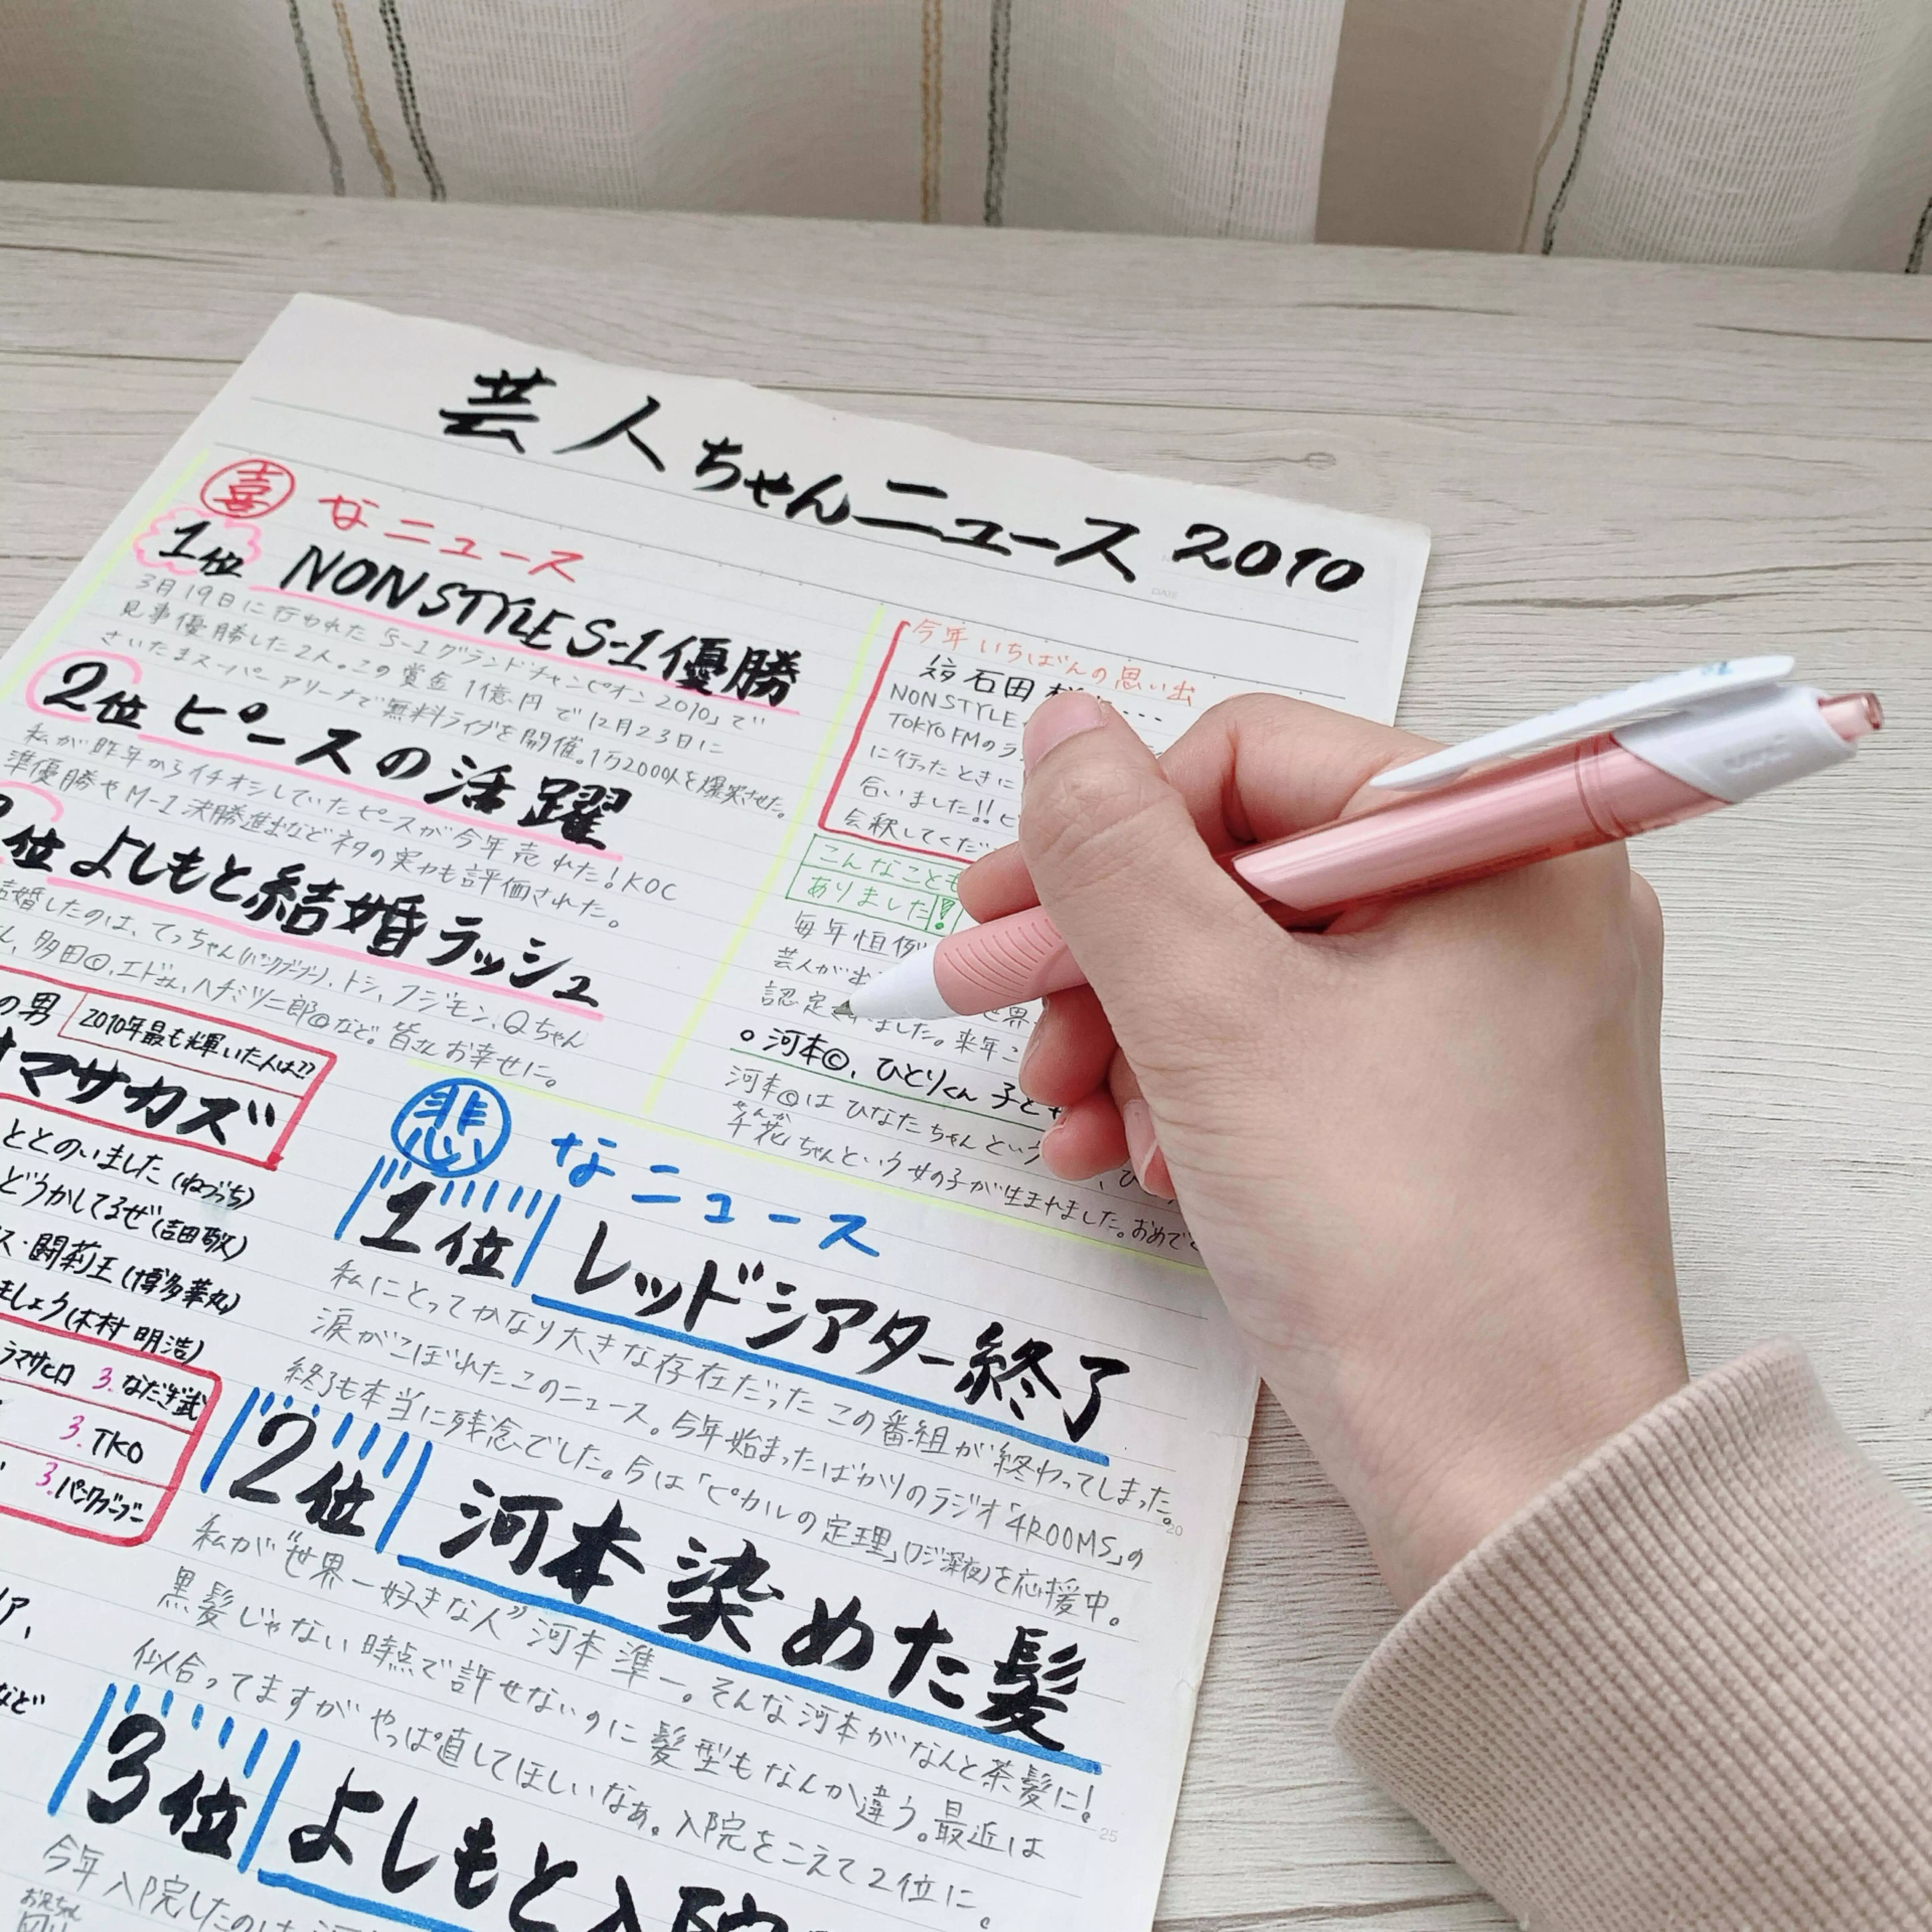 芸人ちゃんニュース 2010
喜なニュース
1位 NON STYLE S-1優勝
3月19日に行われた「S-1グランドチャンピオン2010」で
見事優勝した2人。この賞金1億円で12月23日に
さいたまスーパーアリーナで無料ライブを開催。1万2000人を爆笑させた。
2位 ピースの活躍
私が昨年からイチオシしていたピースが今年売れた!KOC
準優勝やM-1決勝進出などネタの実力も評価された。
位 よしもと結婚ラッシュ
結婚したのは、てっちゃん(パンクブーブー)、トシ、フジモン、Qちゃん
ん、多田©、エドさん、ハチミツ二郎©など。皆さんお幸せに。
今年いちばんの思い出
石田
NON STYLE
TOKYO FMのラ
に行ったときに
合いました!!ビ
会釈してくだ
こんなことも
ありました!
毎年恒例
芸人が出
認定されました。来年こ
○河本©、ひとりくん 子ども
河本©はひなたちゃんという
千花ちゃんという女の子が生まれました。おめで
せんか
の男
2010年最も輝いた人は??
マサカズ
ととのいました(ねづっち)
どうかしてるぜ(吉田敬)
ス・闘莉王(博多華丸)
ましょう(木村明浩)
ラマサヒロ 3.なだぎ武
3.TKO
3.パンクブーブー
など
悲なニュース
1位 レッドシアター終了
私にとってかなり大きな存在だったこの番組が終わってしまった。
涙がこぼれたこのニュース。今年始まったばかりのラジオ「4ROOMS」の
終了も本当に残念でした。今は「ピカルの定理」(フジ深夜)を応援中。
2位 河本染めた髪
私が“世界一好きな人”河本準一。そんな河本がなんと茶髪に!
黒髪じゃない時点で許せないのに髪型もなんか違う。最近は
似合ってますがやっぱ直してほしいなぁ。入院をこえて2位に。
3位 よしもと入院
今年入院したのは
お兄ちゃん
DATE
20
25